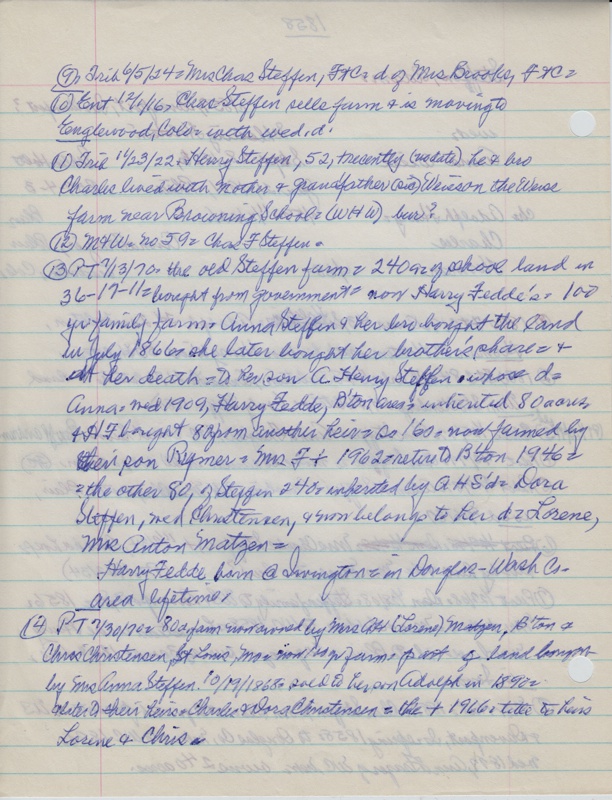 1858
(9) Trib 6/5/24 = Mrs Chas Steffen, F+C = d of Mrs Brooks, F+C =
(10) Ent 12/1/16 = Chas Steffen sells farm & is moving to
Englewood, Colo = with wed. d.
(11) Trib 11/23/22 = Henry Steffen, 52, recently (no date) he & bro
Charles lived with mother & grandfather (sic) Weise on the Weise
farm near Browning School = (WHW) bur?
(12) M&W = no 59 = Chas F Steffen =
(13) PT 7/3/70 = the old Steffen farm = 240 a = of school land in
36-17-11 = bought from government = now Harry Fedde's = 100
yr family farm = Anna Steffen & her bro bought the land
in July 1866 = she later bought her brother's share = &
at her death = to her son A. Henry Steffen whose d =
Anna = wed 1909, Harry Fedde, B'ton area = inherited 80 acres
& HF bought 80 from another heir = so 160 = now farmed by
their son Rymer = Mrs F + 1962 = retire to B'ton 1946 =
= the other 80, of Steffen 240 = inherited by AHS' d = Dora
Steffen, wed Christensen, & now belongs to her d = Lorene,
Mrs Anton Matzen =
Harry Fedde born @ Irvington = in Douglas-Wash Co =
area lifetime.
(14) PT 7/30/70 = 80 a farm now owned by Mrs AH (Lorene) Matzen, B'ton &
Chris Christensen, St Louis, Mo = now farm = part of land bought
by Mrs Anna Steffen 10/19/1868 = sold to her son Adolph in 1890 =
later to their heirs = Charles & Dora Christensen = the + 1966 = title to heirs
Lorene & Chris =